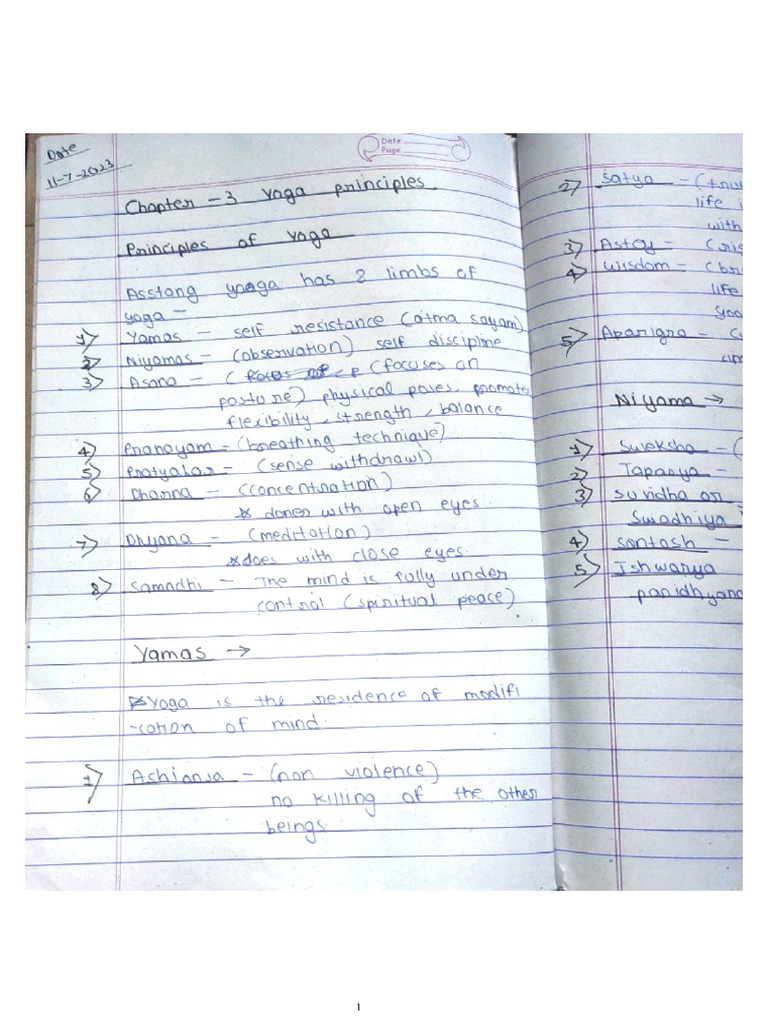 Date
11-7-2023
Date
Page
Chapter - 3 Yoga principles
Principles of Yoga
Asstang yoga has 8 limbs of
yoga -
1) Yamas - self resistance (atma sayam)
2) Niyamas - (observation) self discipline
3) Asana - (focuses on
posture) physical poses, promote
flexibility, strength, balance
4) Pranayam - (breathing technique)
5) Pratyahar - (sense withdrawl)
6) Dharna - (concentration)
* doner with open eyes.
7) Dhyana - (meditation)
* does with close eyes.
8) Samadhi - The mind is fully under
control (spiritual peace)
Yamas →
* Yoga is the residence of modifi
-cation of mind.
1) Achiansa - (non violence)
no killing of the other
beings.
2) Satya - (tru
life i
with
3) Astey -
4) Wisdom - (br
life
5) Aparigra -
Niyama →
1) Sweksha - (
2) Tapasya -
3) suvidha or
Swadhiya
4) Santosh -
5) Ishwarya
panidhyana
1